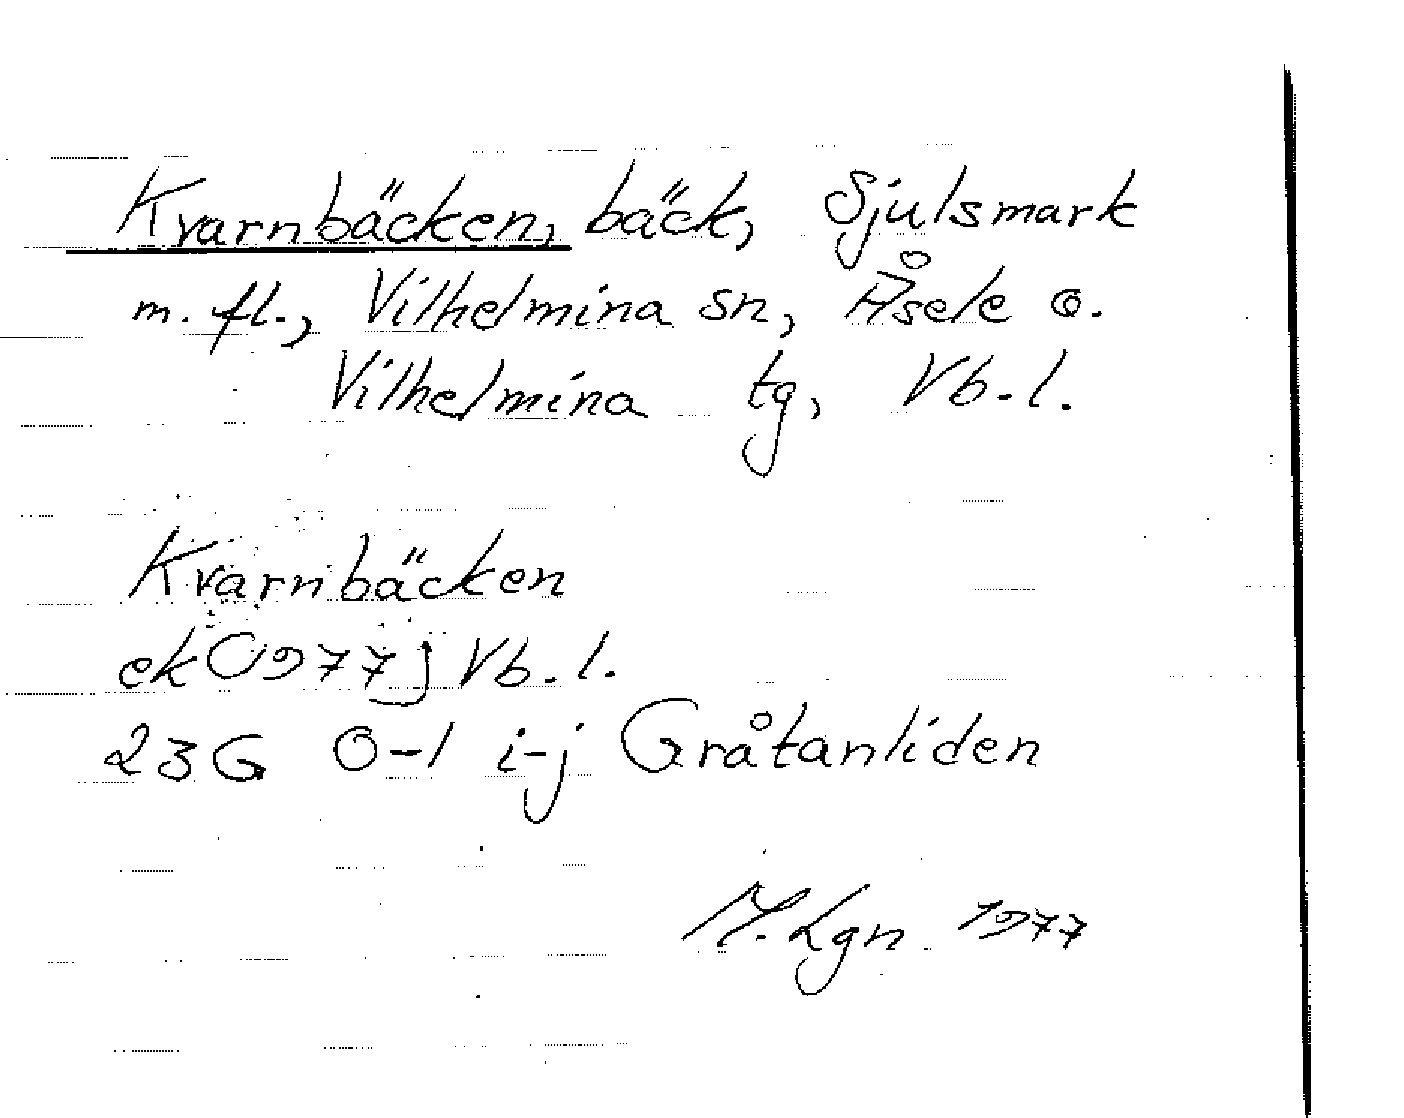 Kvarnbäcken, bäck, Sjulsmark
m. fl., Vilhelmina sn, Åsele o.
Vilhelmina tg, Vb-l.
Kvarnbäcken
ek (1977) Vb.l.
23G 0-1 i-j Gråtanliden
M. Lgn 1977